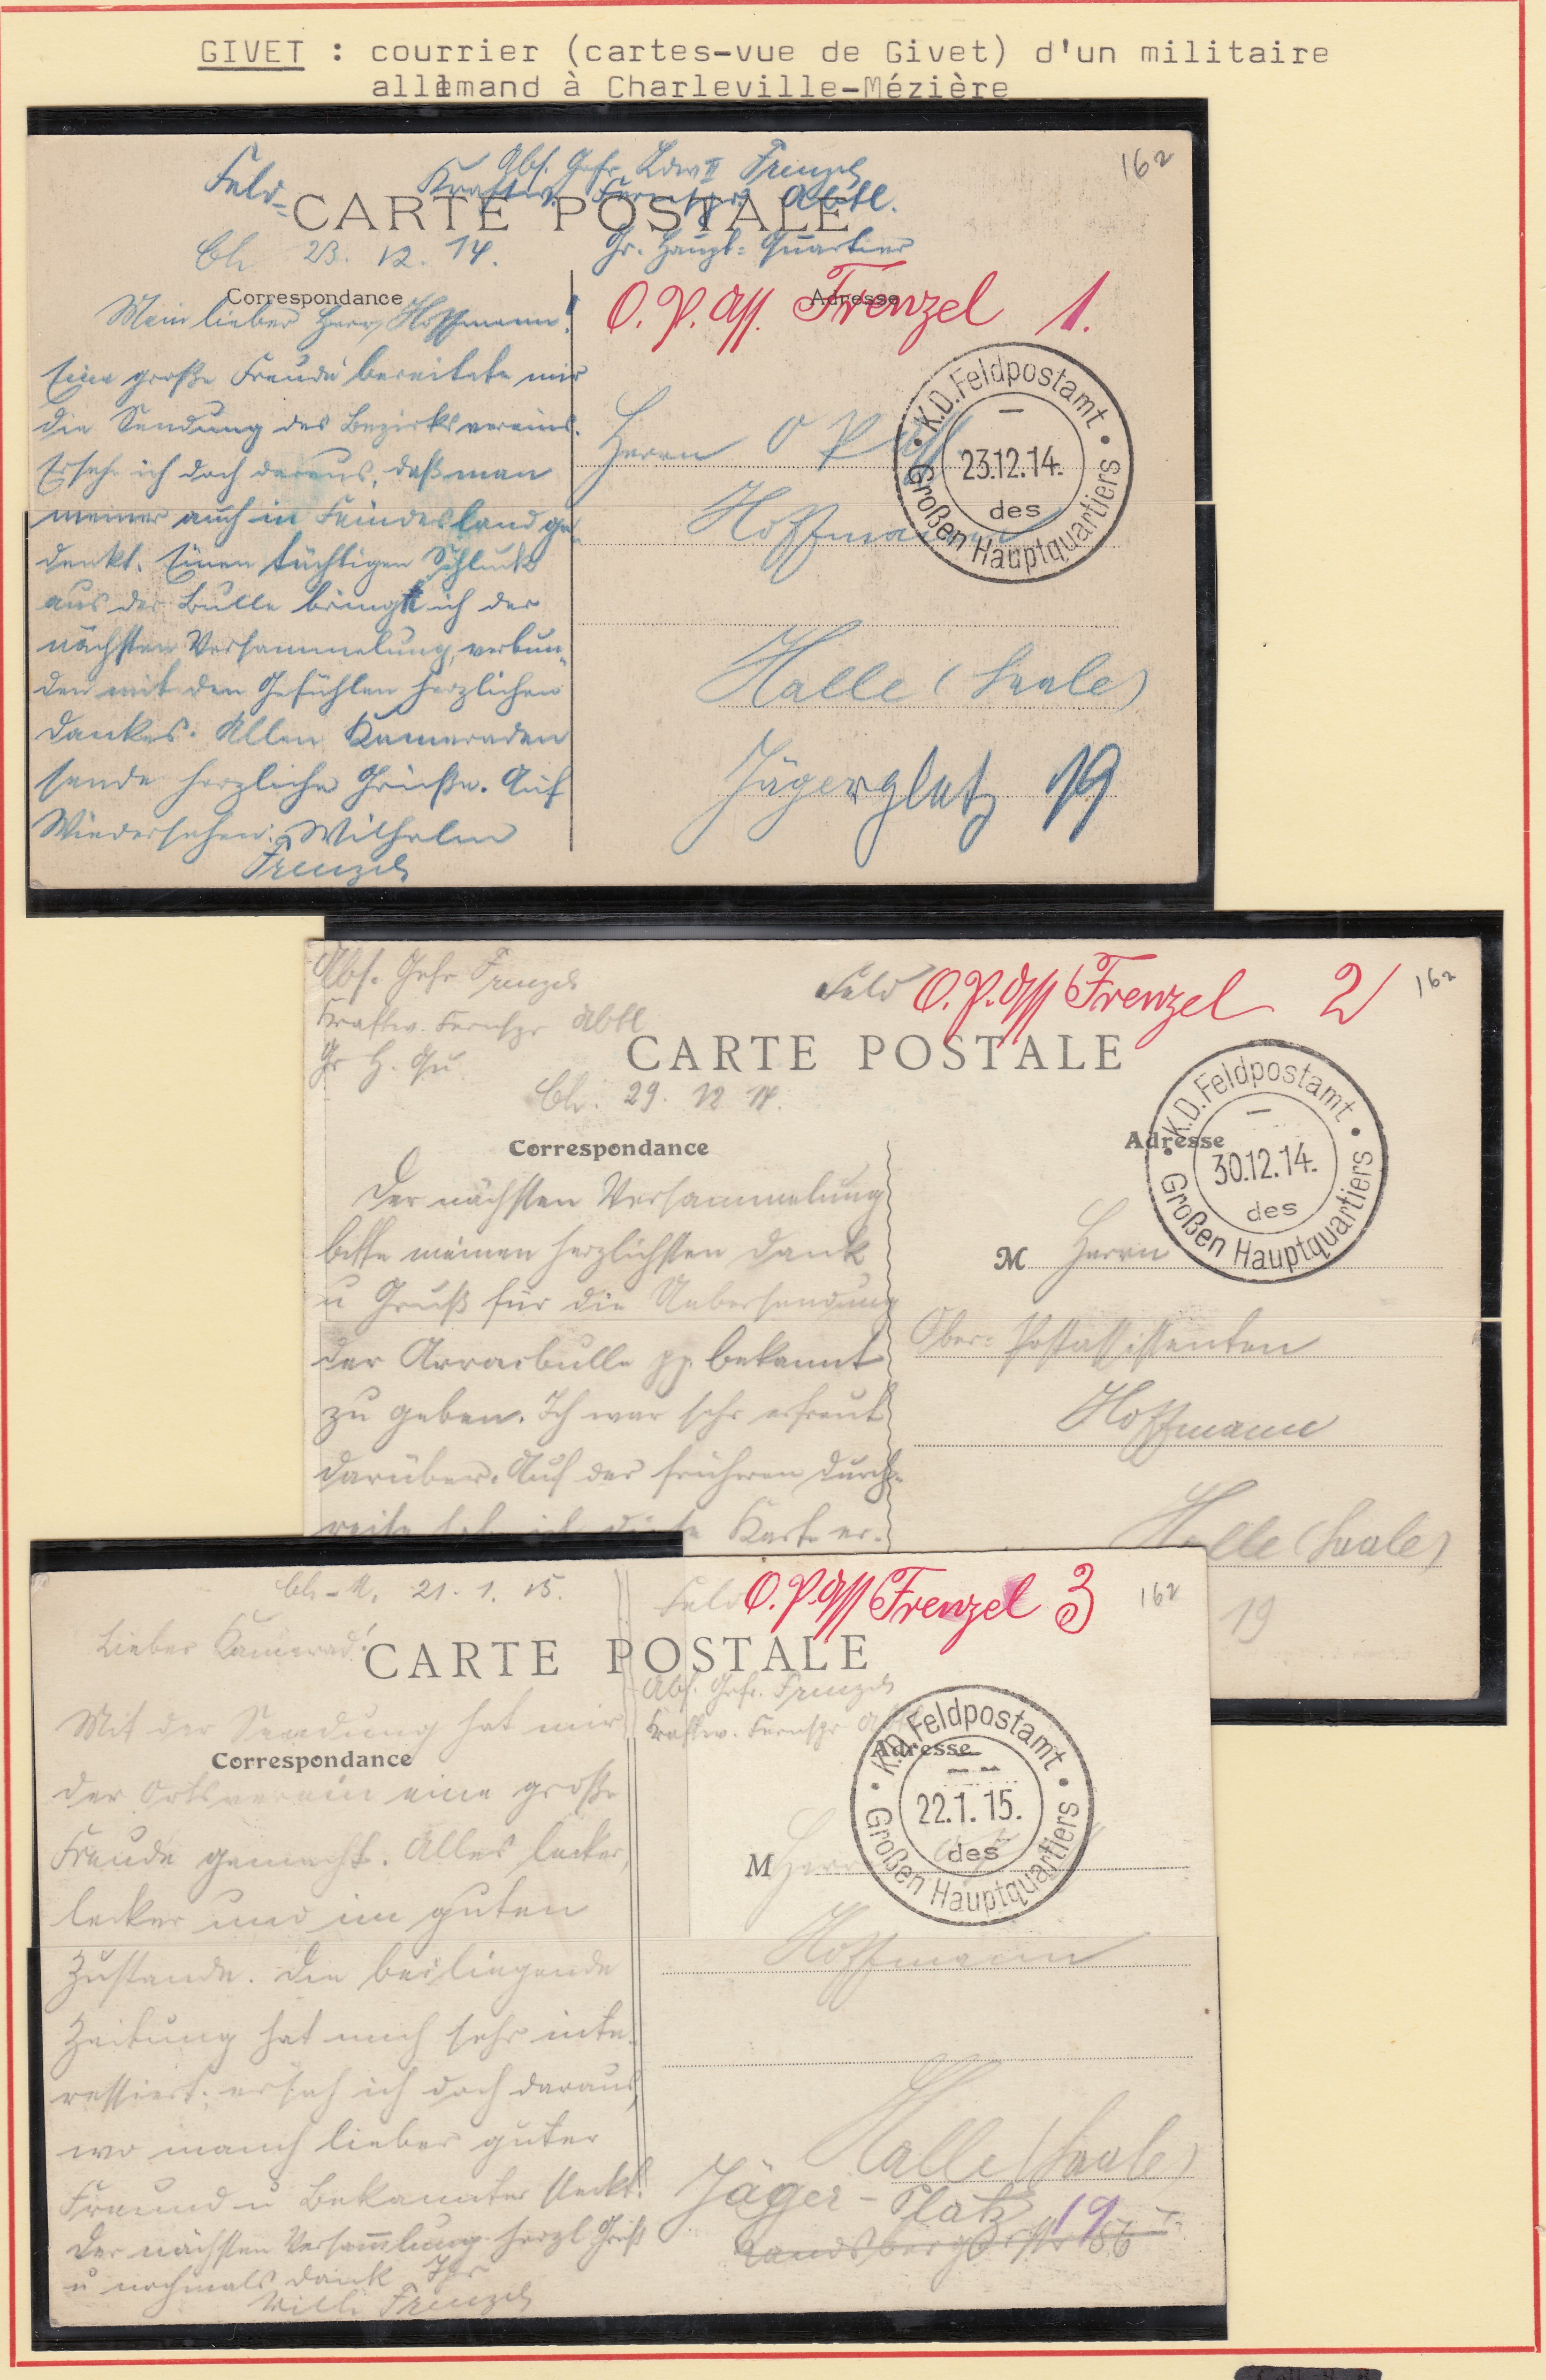 GIVET : courrier (cartes-vue de Givet) d'un militaire
allemand à Charleville-Mézière
162
Abs. Gefr. Ldw II Frenzel
Feld-
Kraftw. Fernspr. Abtl.
CARTE POSTALE
Ch. 23. 12. 14.
Gr. Haupt- Quartier
Correspondance
Adresse
O. P. Ass. Frenzel 1.
Mein lieber Herr Hoffmann!
Eine große Freude bereitete mir
die Sendung des Bezirksvereins.
Ersehe ich doch daraus, daß man
meiner auch in Feindesland ge-
denkt. Einen tüchtigen Schluck
aus der Bulle bringe ich der
nächsten Versammelung, verbun-
den mit den Gefühlen herzlichen
Dankes. Allen Kameraden
sende herzliche Grüße. Auf
Wiedersehen! Wilhelm
Frenzel
K.D. Feldpostamt
23.12.14.
des
Großen Hauptquartiers
Herrn O P Ass
Hoffmann
Halle (Saale)
Jägerplatz 19
Abs. Gefr Frenzel
Kraftw. Fernspr Abtl
Gr H. Qu.
Feld O. P. Ass Frenzel 2
162
CARTE POSTALE
Ch. 29. 12 14.
Correspondance
Adresse
Der nächsten Versammelung
bitte meinen herzlichsten Dank
u Gruß für die Uebersendung
der Arracbulle pp. bekannt
zu geben. Ich war sehr erfreut
darüber. Auf der früheren Durch-
reise hab ich diese Karte er-
K.D. Feldpostamt
30.12.14.
des
Großen Hauptquartiers
M Herrn
Ober- Postassistenten
Hoffmann
Halle (Saale)
19
Ch-M, 21. 1. 15.
Feld O. P. Ass Frenzel 3
162
Lieber Kamerad!
CARTE POSTALE
Abs. Gefr. Frenzel
Kraftw. Fernspr
Correspondance
Adresse
Mit der Sendung hat mir
der Ortsverein eine große
Freude gemacht. Alles lecker,
lecker und im guten
Zustande. Die beiliegende
Zeitung hat mich sehr inte-
ressiert; ersah ich doch daraus,
wo manch lieber guter
Freund u Bekannter steckt.
Der nächsten Versam̄lung herzl Gruß
u nochmals Dank Ihr
Willi Frenzel
K.D. Feldpostamt
22.1.15.
des
Großen Hauptquartiers
M Herrn
Hoffmann
Halle (Saale)
Jäger-Platz 19
Landsbergerstr 66